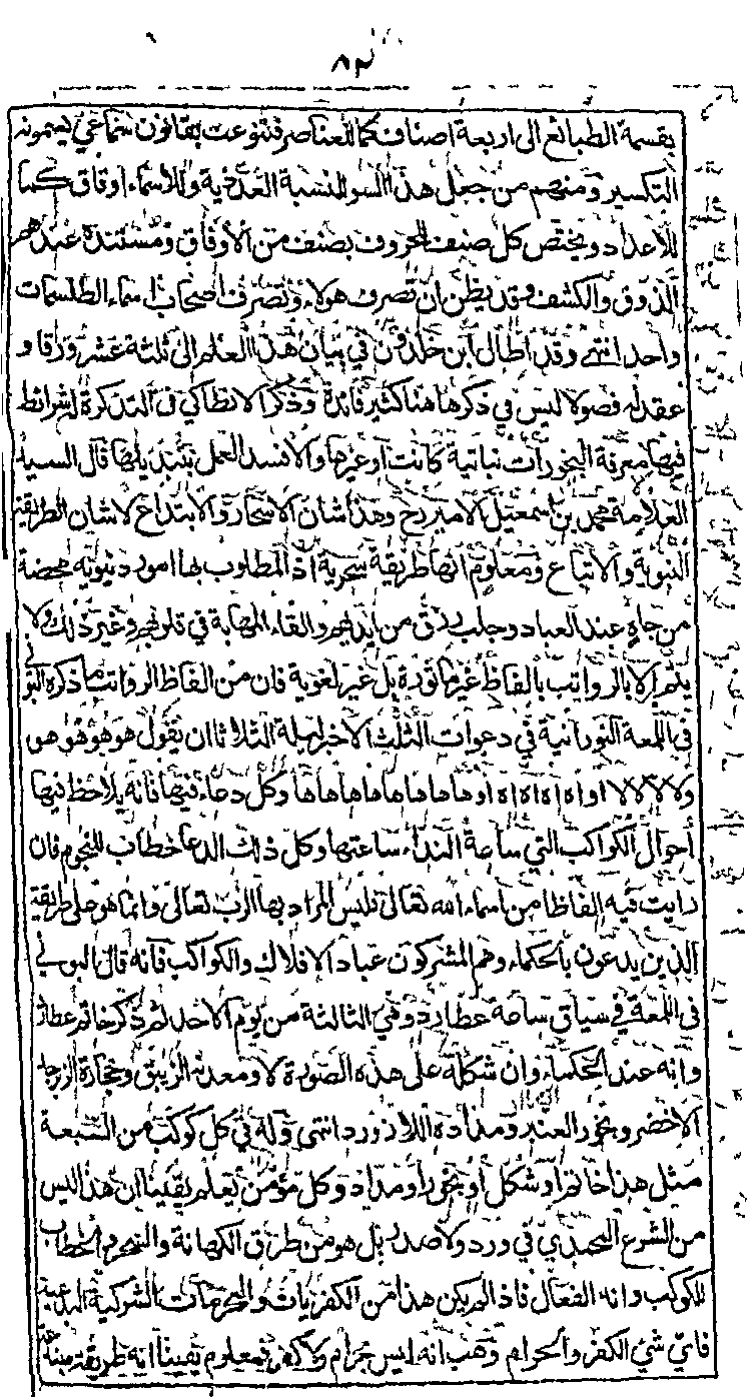 ٨٢
بقسمة الطبائع الى اربعة اصناف كما للعناصر فتنوعت بقانون صناعي يسمونه
التكسير ومنهم من جعل هذا السر للنسبة العددية وللاسماء اوفاق كما
للأعداد ويختص كل صنف الحروف بصنف من الأوفاق ومستنده عندهم
الذوق والكشف وقد يظن ان تصرف هولاء وتصرف اصحاب اسماء الطلسمات
واحد انتهى وقد اطال ابن خلدون في بيان هذا العلم الى ثلثة عشر ورقا و
عقد له فصولا ليس في ذكرها هنا كثير فائدة وذكر الانطاكي في التذكرة لشرائط
فيها معرفة البخورات نباتية كانت او غيرها والا فسد العمل بتبديلها قال السيد
العلامة محمد بن اسمعيل الامير رح وهذا شان الاسحار والابتداع لا شان الطريقة
النبوية والاتباع ومعلوم انها طريقة سحرية اذ المطلوب بها امور دنيويه محضة
من جاه عند العباد وجلب رزق من ايديهم والقاء المهابة في قلوبهم وغير ذلك ولا
يتم الا بالرواتب بالفاظ غير ماثورة بل غير لغوية فان من الفاظ الرواتب ما ذكره البوني
في اللمعة النورانية في دعوات الثلث الاخر ليلة الثلاثا ان يقول هو هو هو هو
ولالالالا اواه اه اه اه اوها ها ها ها ها ها ها ها وكل دعاء فيها فانه يلاحظ فيها
أحوال الكواكب التي ساعة النداء ساعتها وكل ذلك الدعا خطاب للنجوم فان
رايت فيه الفاظا من اسماء الله تعالى فليس المراد بها الرب تعالى وانما هو على طريقة
الذين يدعون بالحكماء وهم المشركون عباد الافلاك والكواكب فانه قال البوني
في اللمعة في سياق ساعة عطارد وفي الثالثة من يوم الاحد ثم ذكر خاتم عطارد
وانه عند الحكماء وان شكله على هذه الصورة لا ومعدنه الزيبق وحجارة الزبرجد
الاخضر وبخور العنبر ومداده اللازورد انتهى وله في كل كوكب من السبعة
مثل هذا خاتم او شكل او بخور او مداد وكل مؤمن يعلم يقينا ان هذا ليس
من الشرع المحمدي في ورد ولا صدر بل هو من طرق الكهانة والتنجيم والخطاب
للكوكب وانه الفعال فاذا لم يكن هذا من الكفريات والمحرمات الشركية البدعية
فاي شي الكفر والحرام وهب انه ليس بحرام ولا كفر فمعلوم يقينا انه طريقة مبتدعة